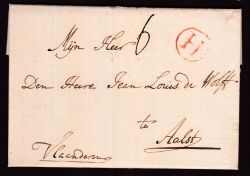 Mijn Heer 6 H
Den Heere Jean Louis de Wolff
to
Aalst
Vlaenderen